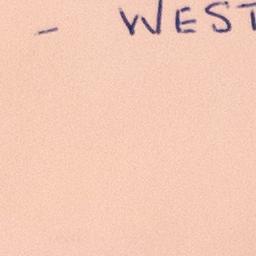 - WEST